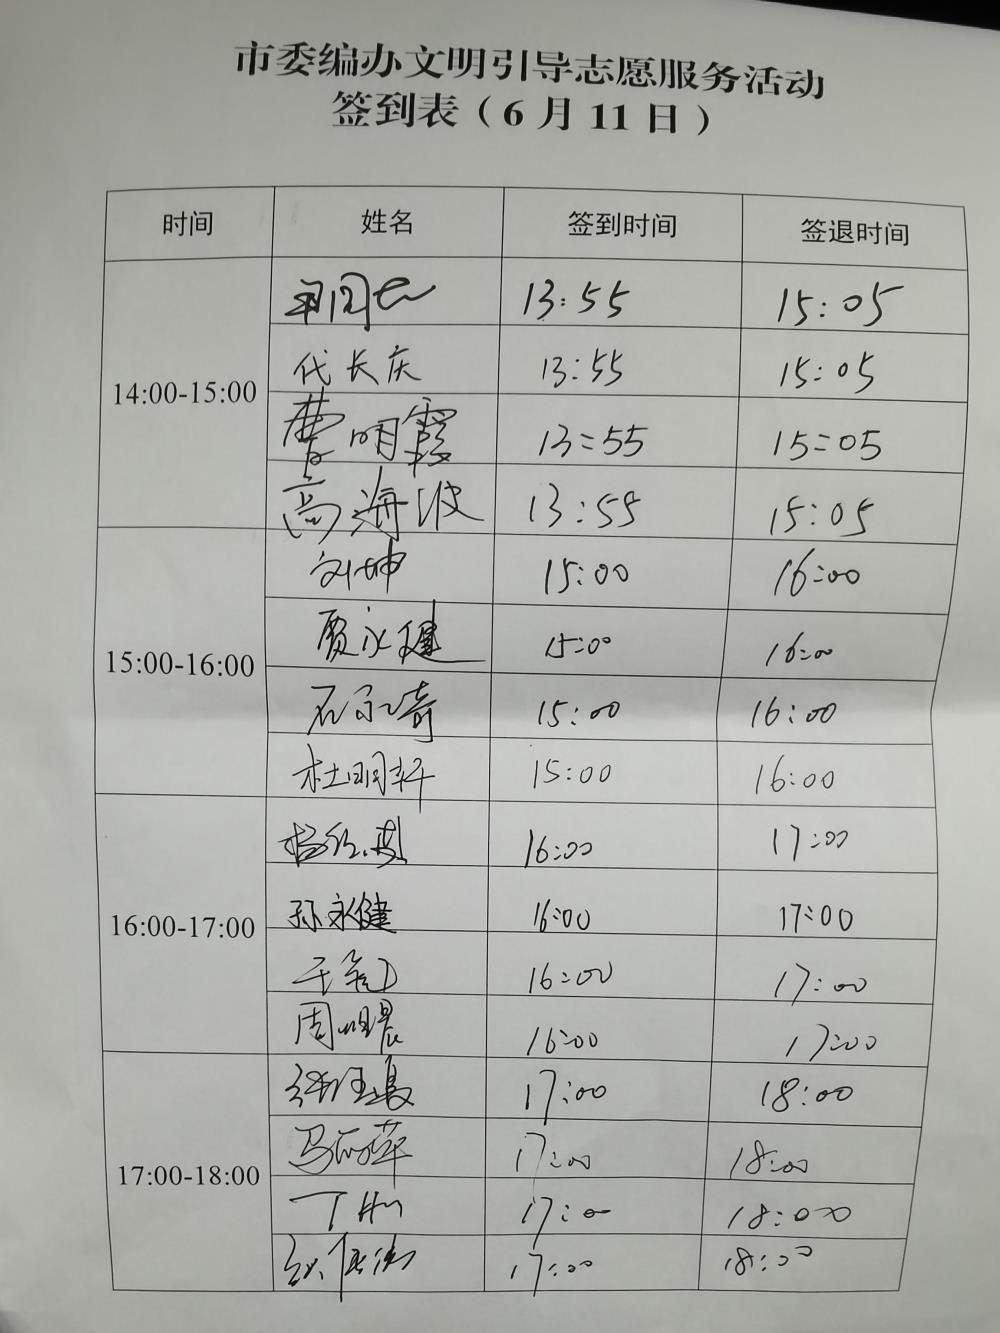 市委编办文明引导志愿服务活动
签到表（6月11日）
时间 姓名 签到时间 签退时间
14:00-15:00
13:55 15:05
代长庆 13:55 15:05
曹明霞 13:55 15:05
高海波 13:55 15:05
15:00-16:00
刘坤 15:00 16:00
贾永健 15:00 16:00
石 奇 15:00 16:00
杜明轩 15:00 16:00
16:00-17:00
杨 16:00 17:00
孙永健 16:00 17:00
16:00 17:00
周明晨 16:00 17:00
17:00-18:00
17:00 18:00
马 萍 17:00 18:00
丁 17:00 18:00
赵 17:00 18:00